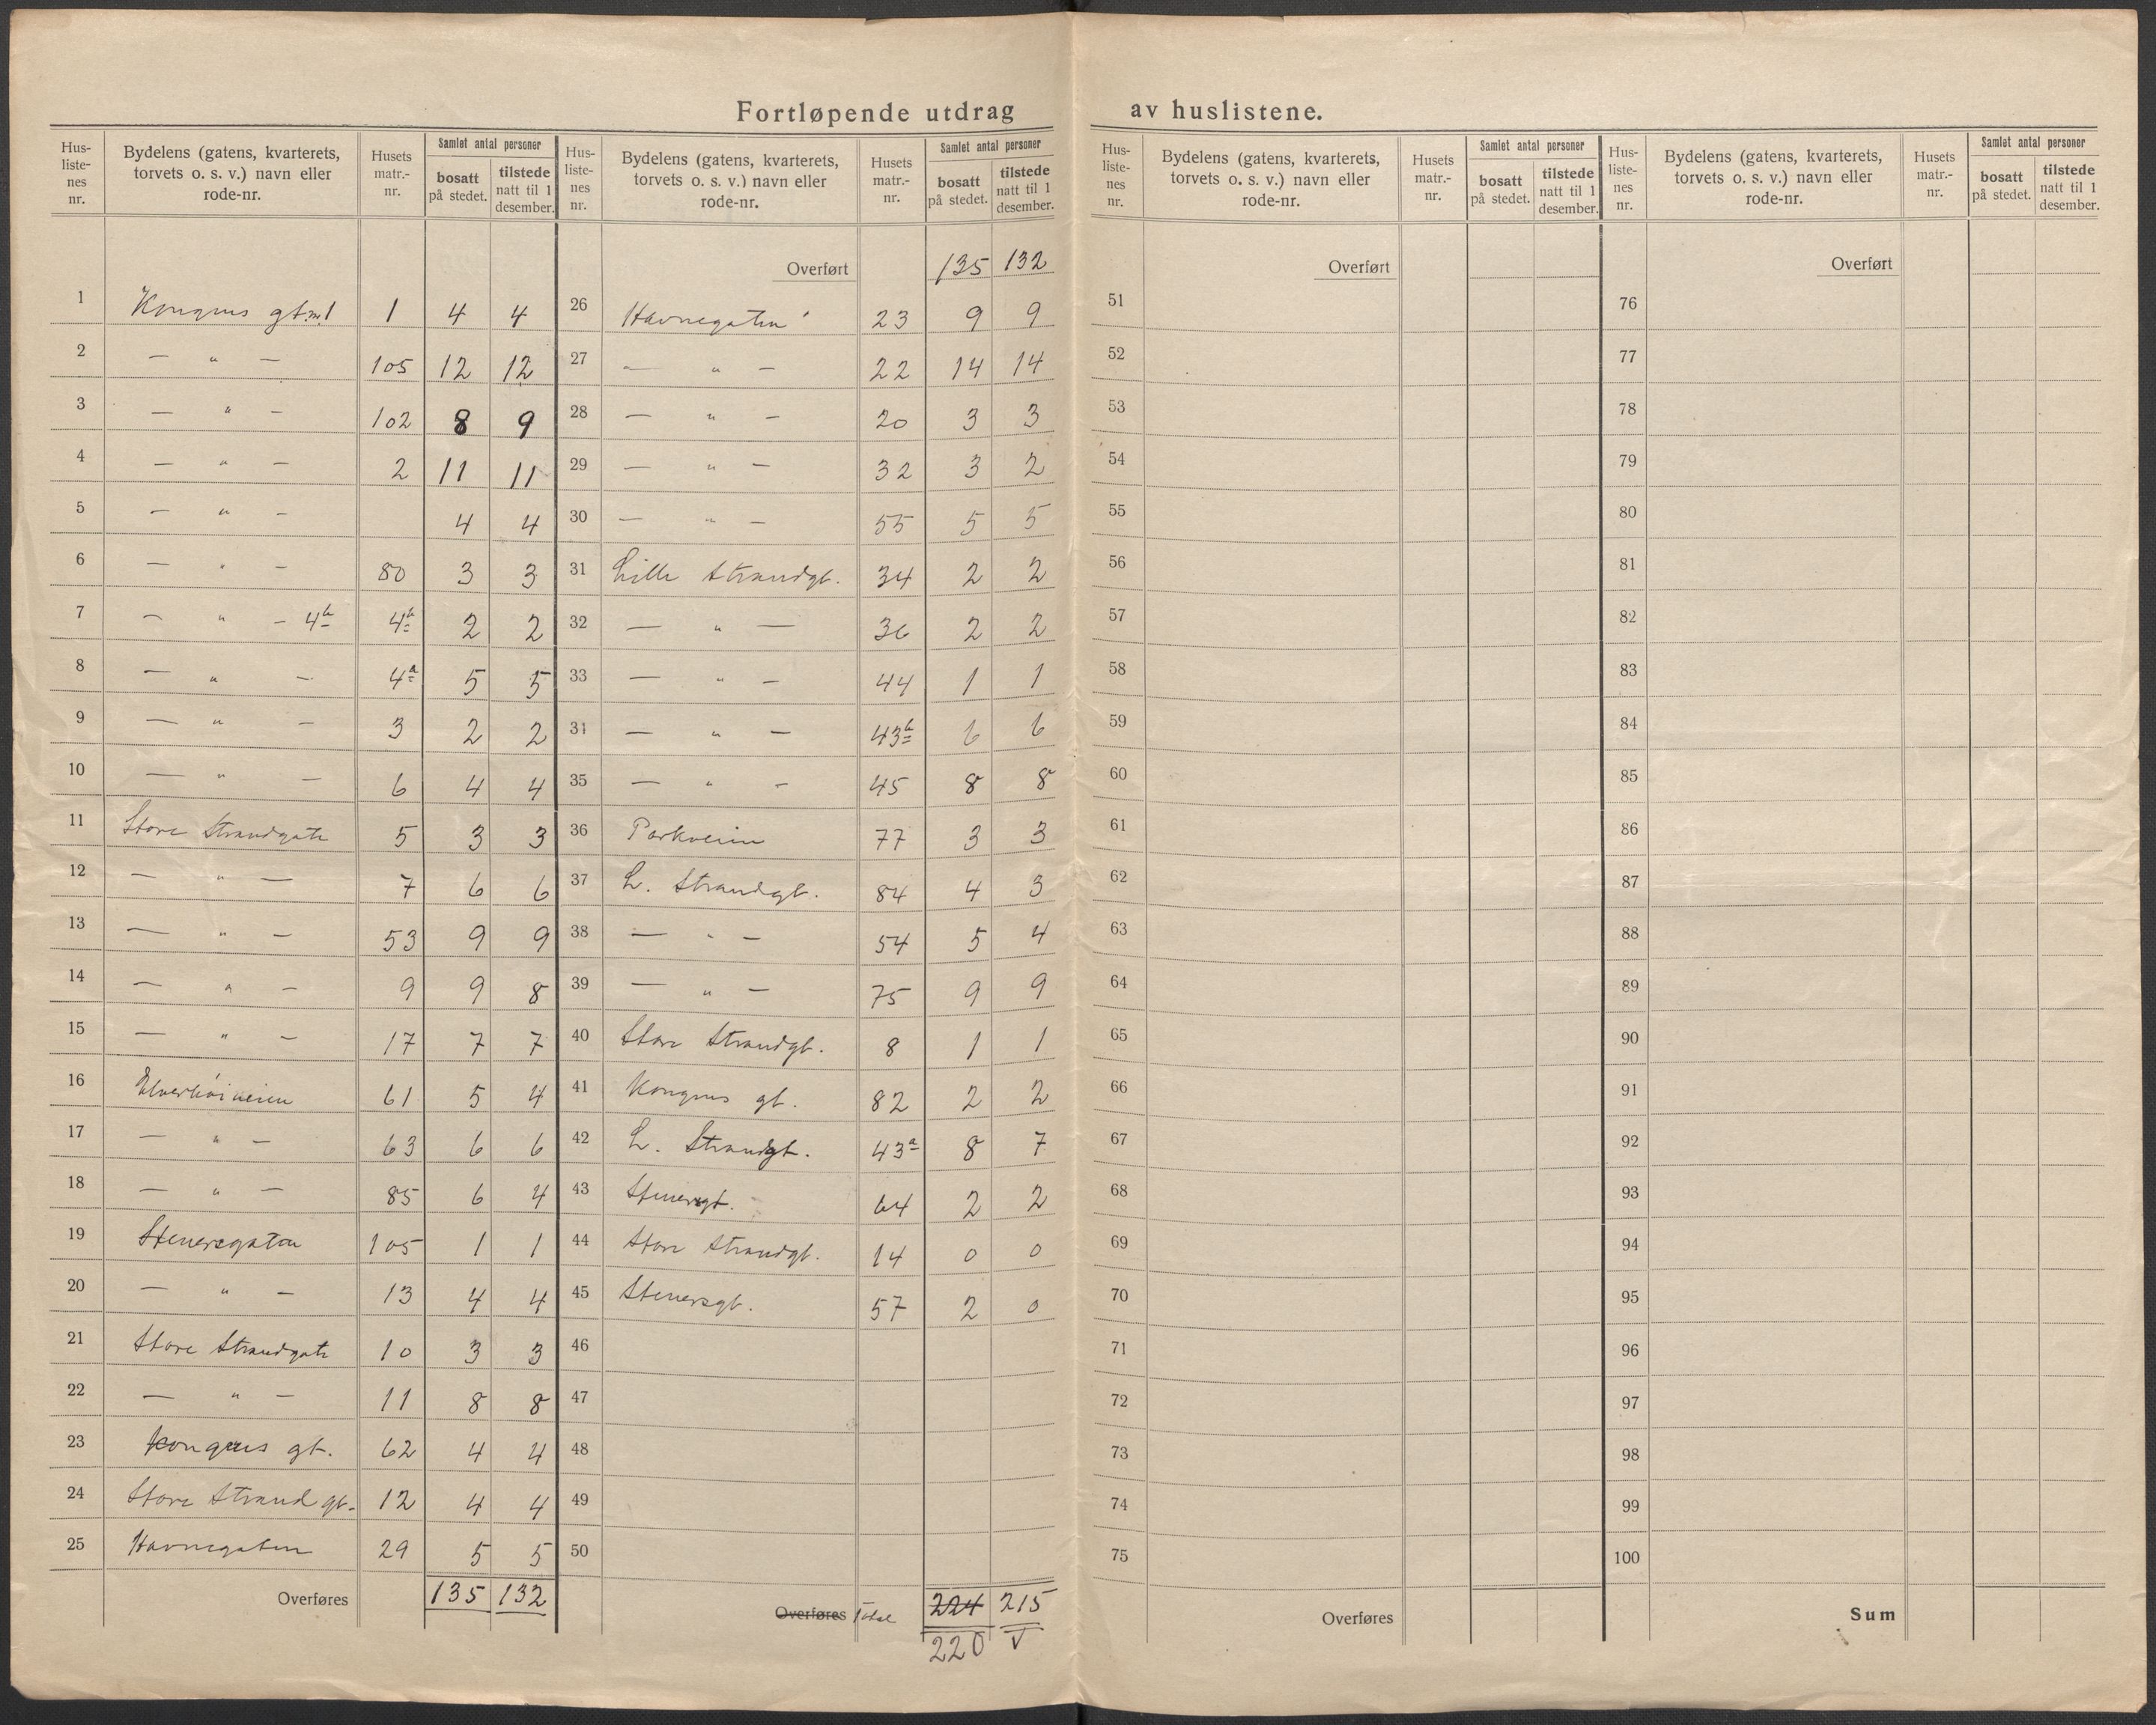 Fortløpende utdrag av huslistene.
Hus-listenes nr. Bydelens (gatens, kvarterets, torvets o. s. v.) navn eller rode-nr. Husets matr.-nr. Samlet antal personer bosatt på stedet. tilstede natt til 1 desember.
1 Kongens gt. 1 4 4
2 — " — 105 12 12
3 — " — 102 8 9
4 — " — 2 11 11
5 — " — 4 4
6 — " — 80 3 3
7 — " — 4b 4b 2 2
8 — " — 4a 5 5
9 — " — 3 2 2
10 — " — 6 4 4
11 Store Strandgate 5 3 3
12 — " — 7 6 6
13 — " — 53 9 9
14 — " — 9 9 8
15 — " — 17 7 7
16 Elverhöiveien 61 5 4
17 — " — 63 6 6
18 — " — 85 6 4
19 Stenersgaten 105 1 1
20 — " — 13 4 4
21 Store Strandgate 10 3 3
22 — " — 11 8 8
23 Kongens gt. 62 4 4
24 Store Strandgt. 12 4 4
25 Havnegaten 29 5 5
Overføres 135 132
Hus-listenes nr. Bydelens (gatens, kvarterets, torvets o. s. v.) navn eller rode-nr. Husets matr.-nr. Samlet antal personer bosatt på stedet. tilstede natt til 1 desember.
Overført 135 132
26 Havnegaten 23 9 9
27 — " — 22 14 14
28 — " — 20 3 3
29 — " — 32 3 2
30 — " — 55 5 5
31 Lille Strandgt. 34 2 2
32 — " — 36 2 2
33 — " — 44 1 1
34 — " — 43b 6 6
35 — " — 45 8 8
36 Parkveien 77 3 3
37 L. Strandgt. 84 4 3
38 — " — 54 5 4
39 — " — 75 9 9
40 Store Strandgt. 8 1 1
41 Kongens gt. 82 2 2
42 L. Strandgt. 43a 8 7
43 Stenersgt. 64 2 2
44 Store Strandgt. 14 0 0
45 Stenersgt. 57 2 0
46
47
48
49
50
Overføres Total 224 215
220
Hus-listenes nr. Bydelens (gatens, kvarterets, torvets o. s. v.) navn eller rode-nr. Husets matr.-nr. Samlet antal personer bosatt på stedet. tilstede natt til 1 desember.
Overført
51
52
53
54
55
56
57
58
59
60
61
62
63
64
65
66
67
68
69
70
71
72
73
74
75
Overføres
Hus-listenes nr. Bydelens (gatens, kvarterets, torvets o. s. v.) navn eller rode-nr. Husets matr.-nr. Samlet antal personer bosatt på stedet. tilstede natt til 1 desember.
Overført
76
77
78
79
80
81
82
83
84
85
86
87
88
89
90
91
92
93
94
95
96
97
98
99
100
Sum